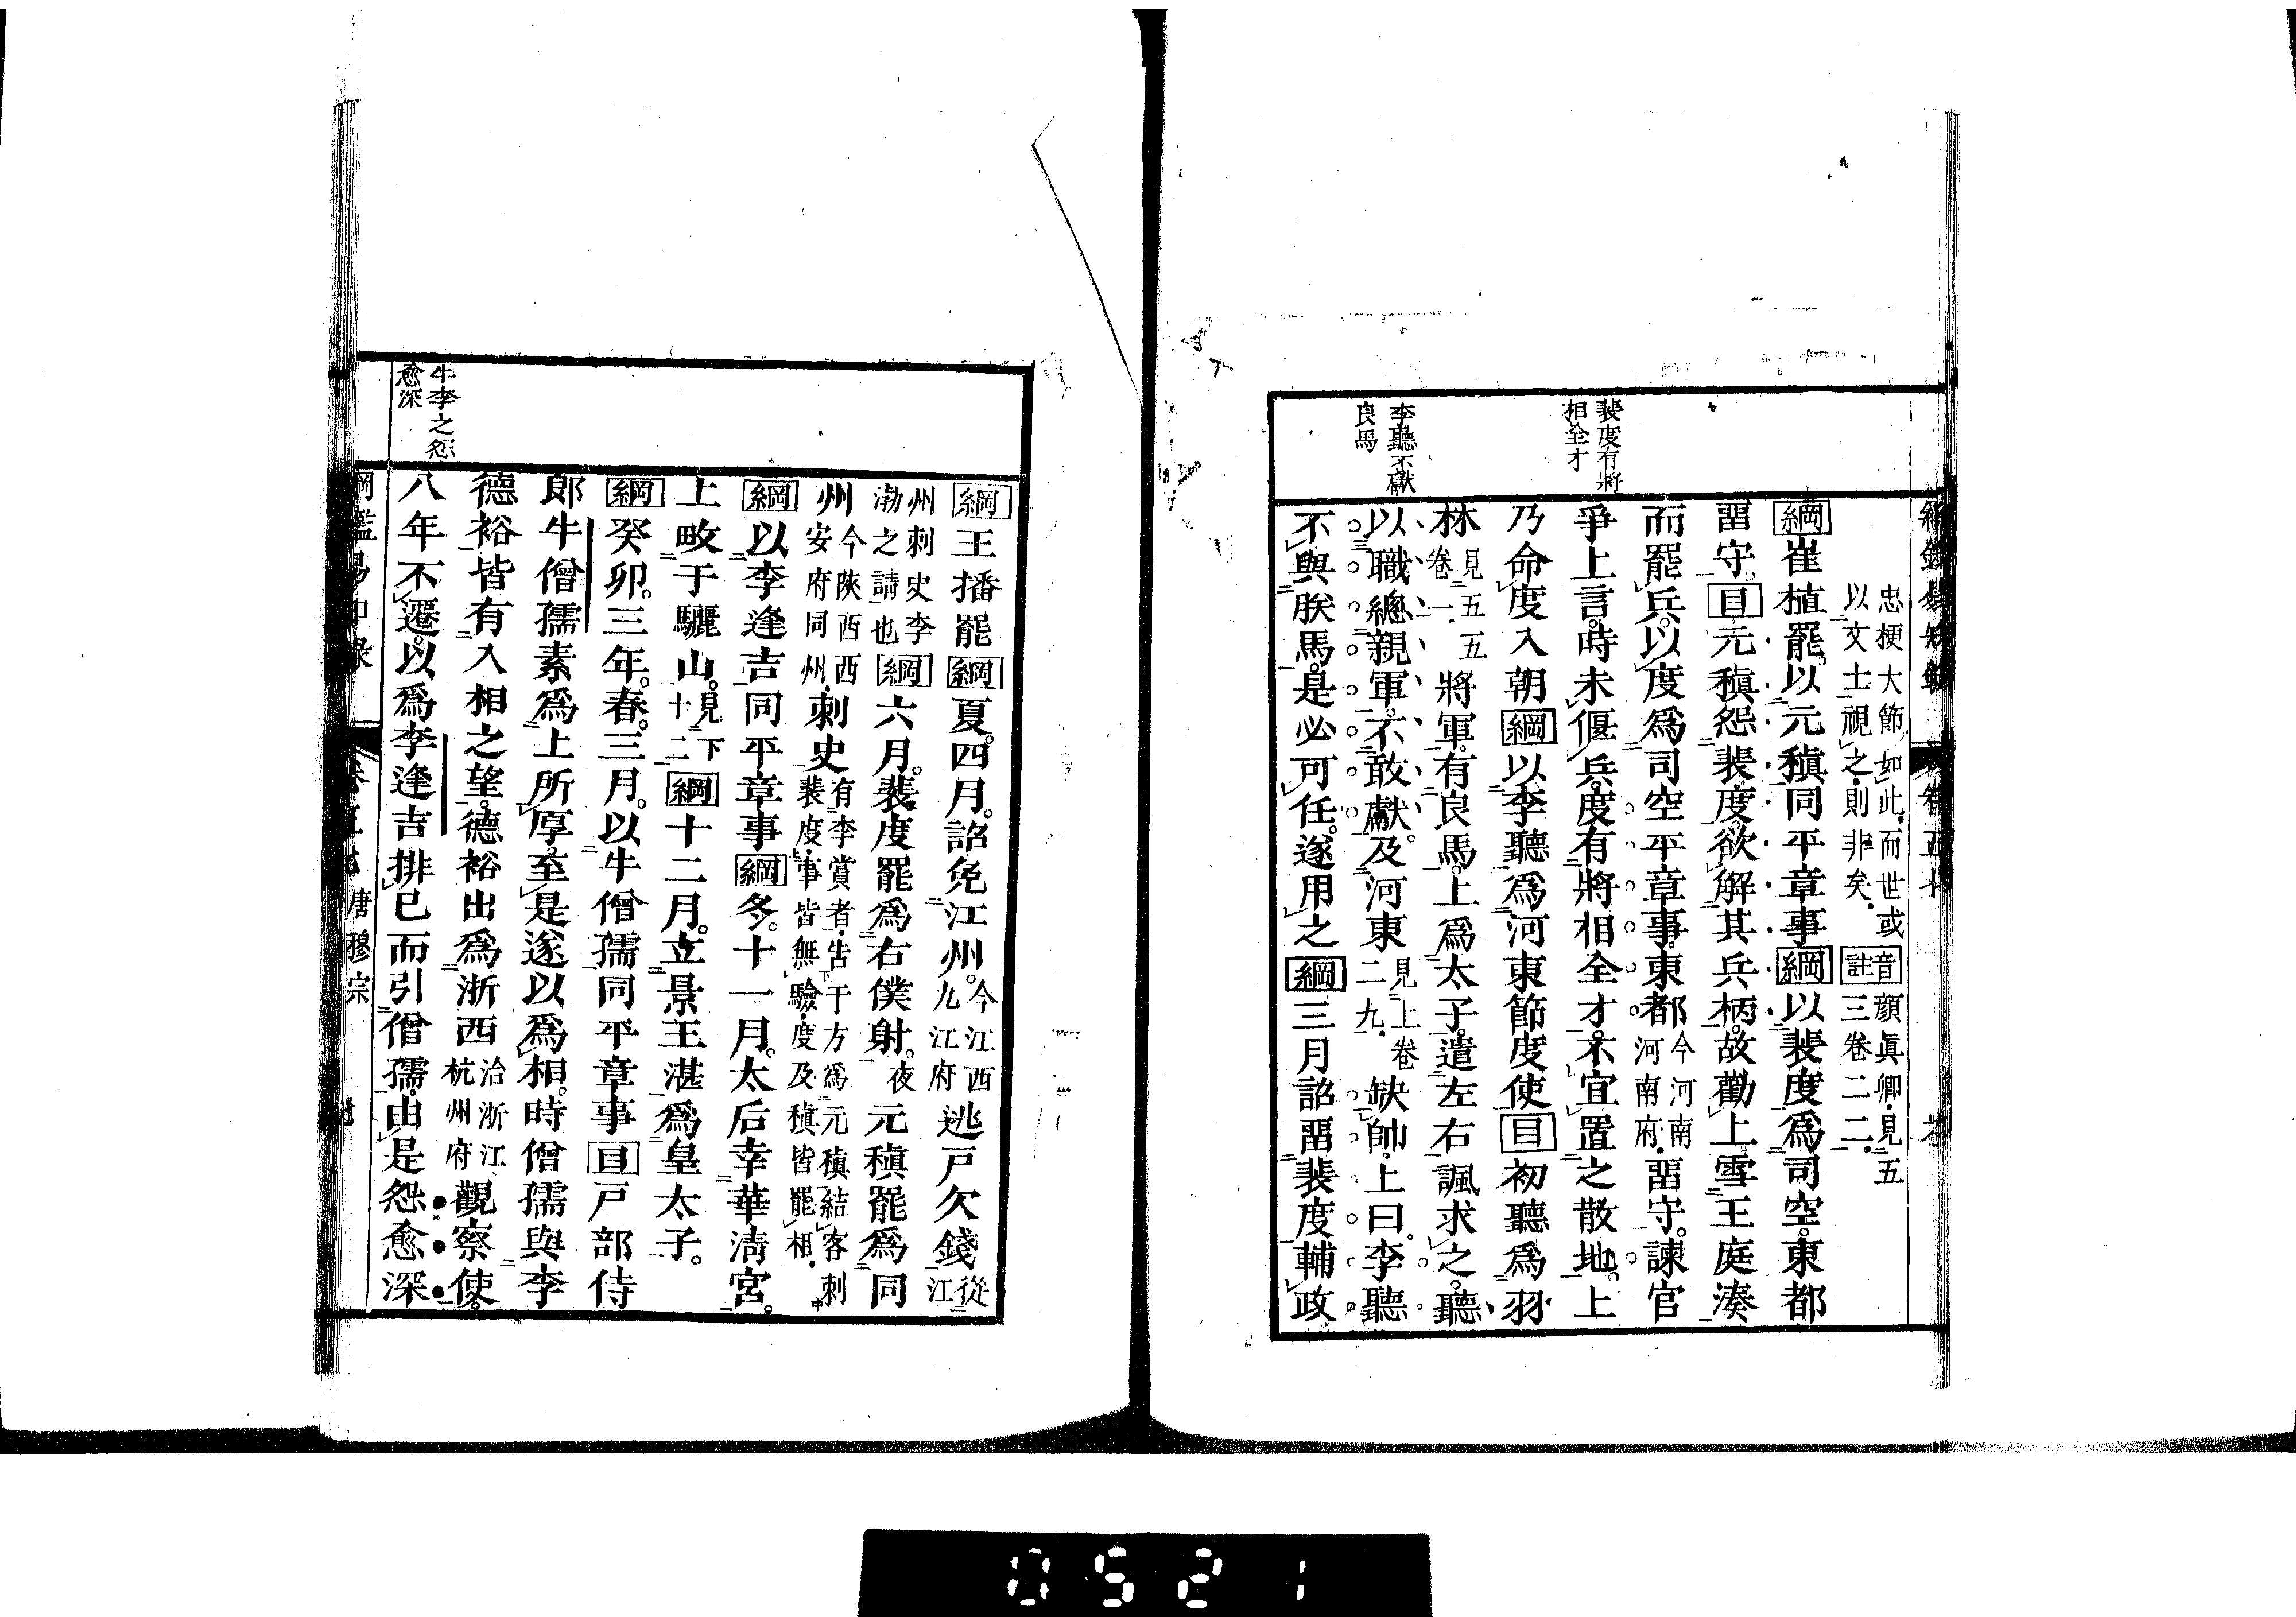 裴度有將
相全才
李聽不獻
良馬
忠梗大節如此而世或
以文士視之則非矣
音顔眞卿見五
註三卷二二
綱崔植罷以元稹同平章事綱以裴度爲司空東都
畱守目元稹怨裴度欲解其兵柄故勸上雪王庭湊
而罷兵以度爲司空平章事東都今河南河南府畱守諫官
爭上言時未偃兵度有將相全才不宜置之散地上
乃命度入朝綱以李聽爲河東節度使目初聽爲羽
林見五五卷一將軍有良馬上爲太子遣左右諷求之聽
以職總親軍不敢獻及河東見上卷二九缺帥上曰李聽
不與朕馬是必可任遂用之綱三月詔畱裴度輔政
牛李之怨
愈深
綱王播罷綱夏四月詔免江州今江西九江府逃戸欠錢從江
州刺史李渤之請也綱六月裴度罷爲右僕射夜元稹罷爲同
州今陝西西安府同州刺史有李賞者吿于方爲元稹結客刺裴度事皆無驗度及稹皆罷相
綱以李逢吉同平章事綱冬十一月太后幸華淸宮
上畋于驪山見下十二綱十二月立景王湛爲皇太子
綱癸卯三年春三月以牛僧孺同平章事目戸部侍
郎牛僧孺素爲上所厚至是遂以爲相時僧孺與李
德裕皆有入相之望德裕出爲浙西治浙江杭州府觀察使
八年不遷以爲李逢吉排已而引僧孺由是怨愈深
唐穆宗
0521